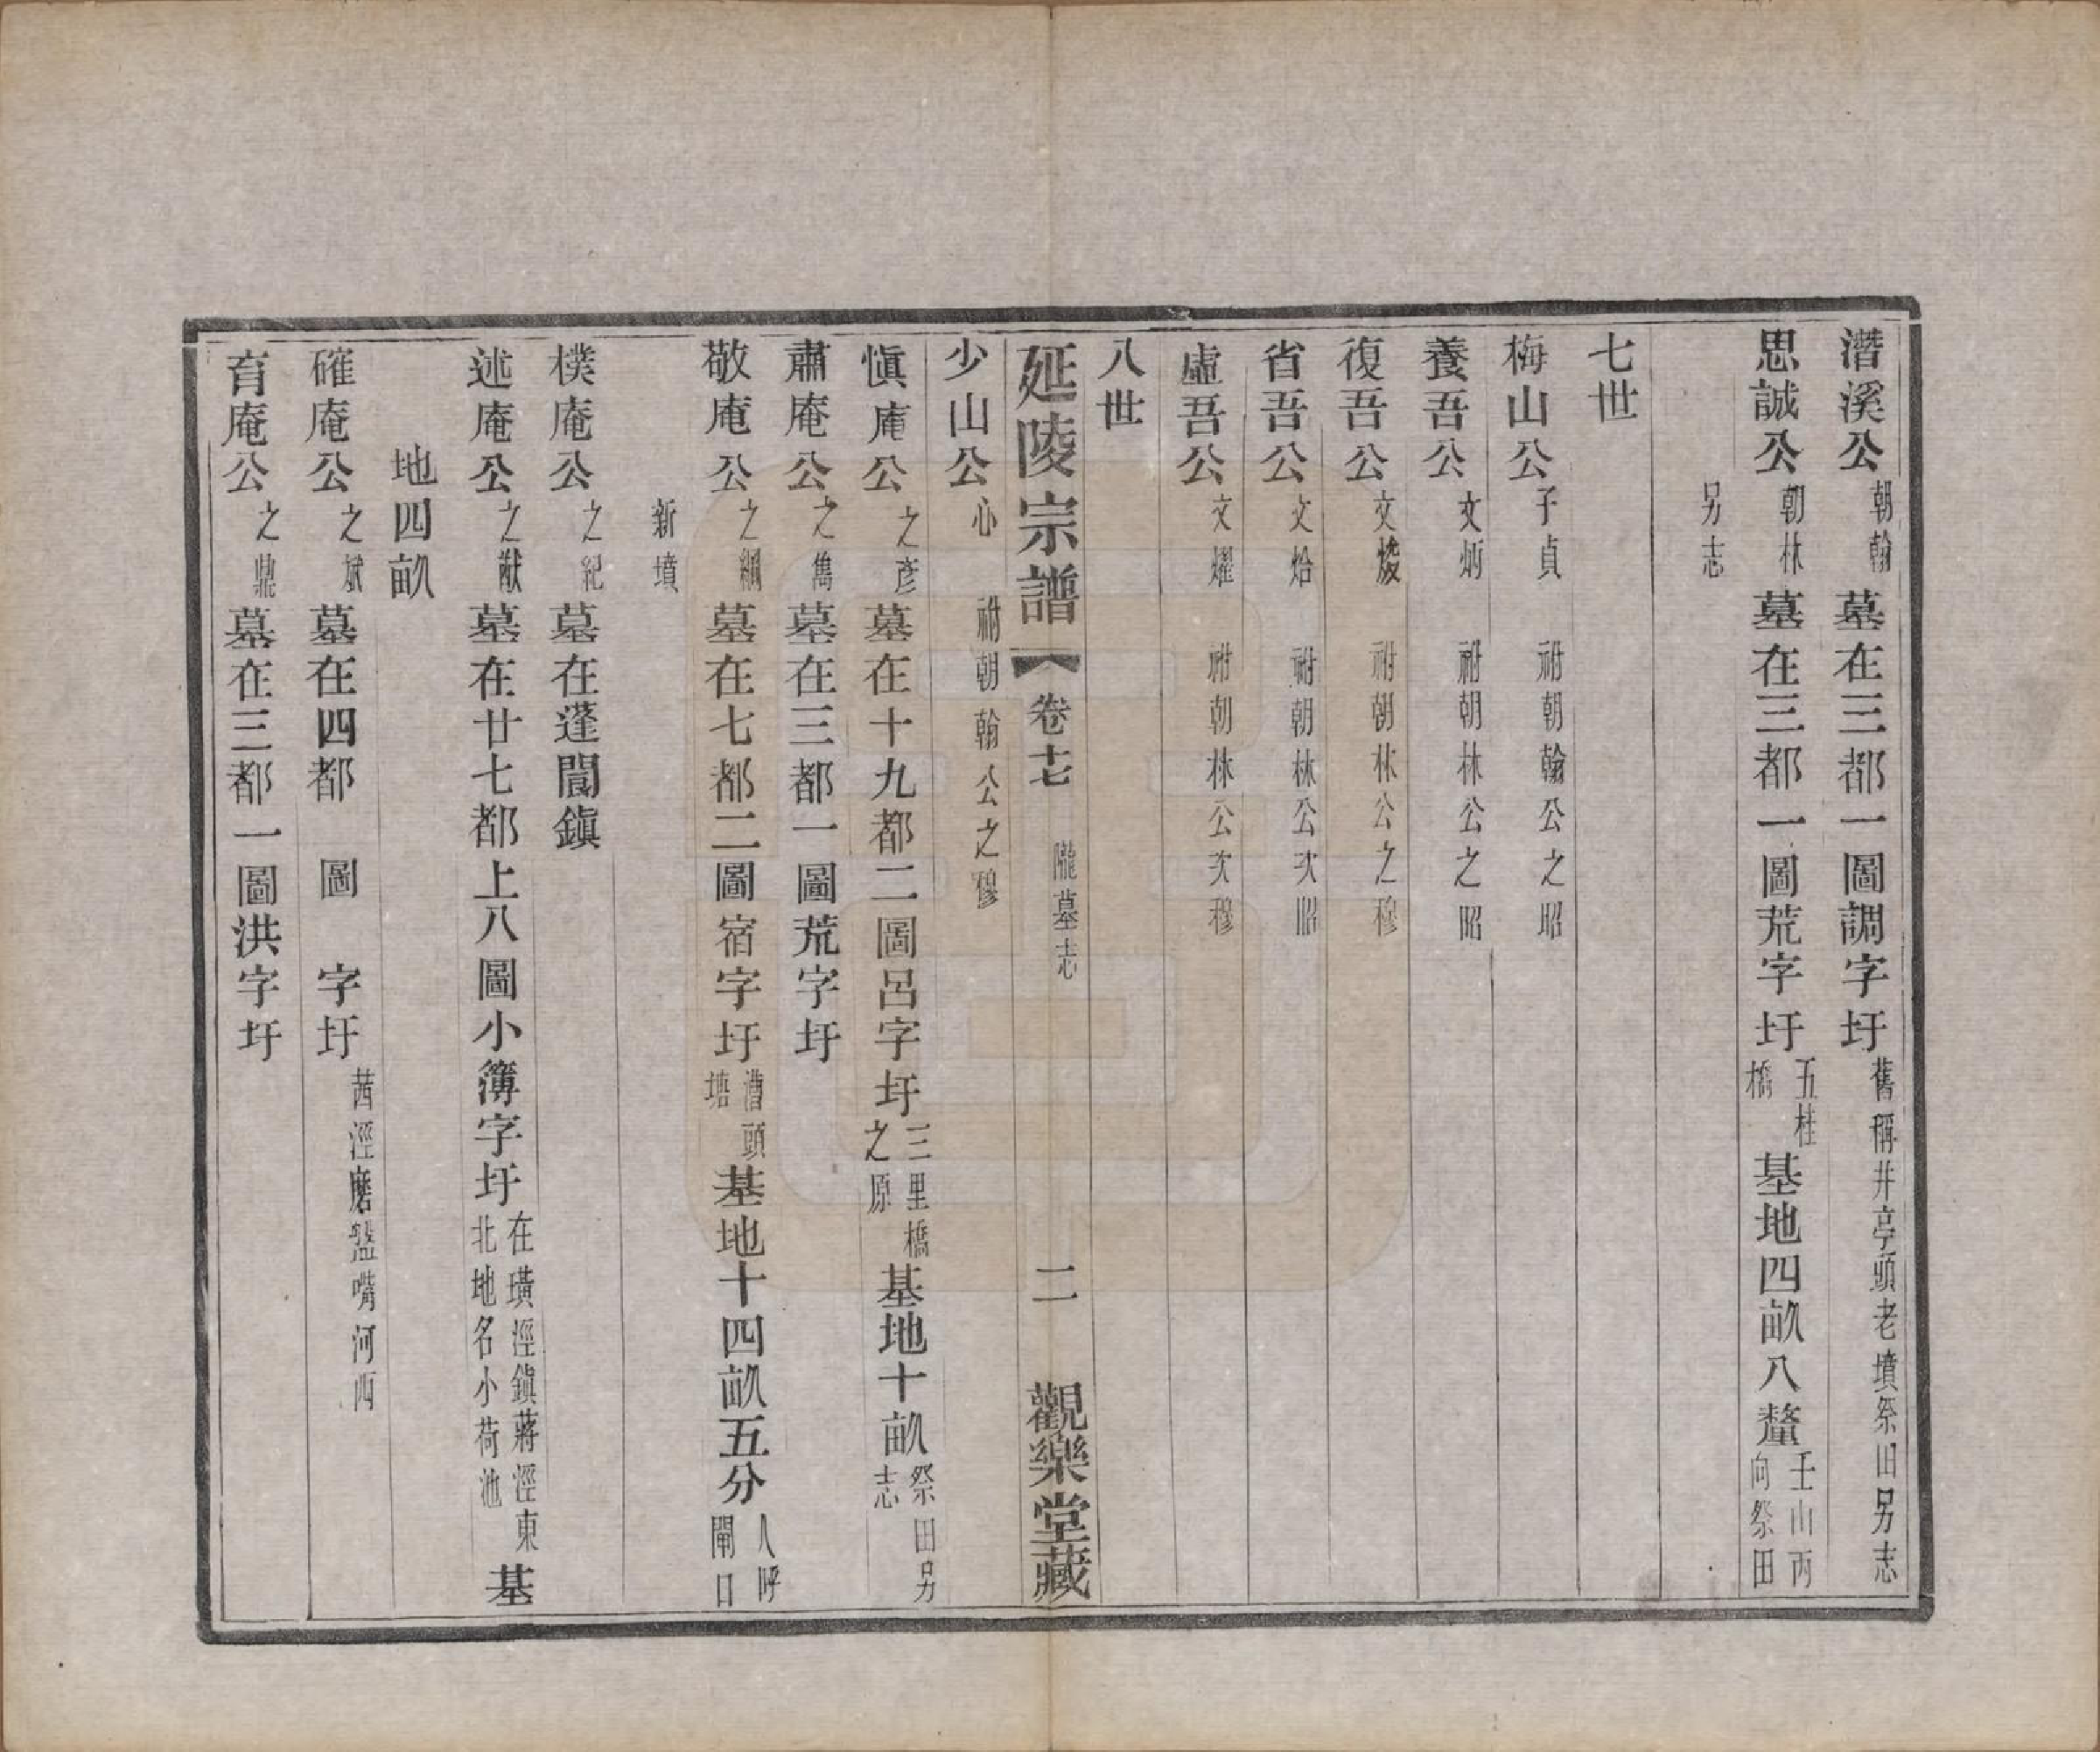 潛溪公朝翰墓在三都一圖調字圩舊稱井亭頭老墳祭田另志
思誠公朝林墓在三都一圖荒字圩五桂橋基地四畝八釐壬山丙向祭田
另志
七世
梅山公子貞 祔朝翰公之昭
養吾公文炳 祔朝林公之昭
復吾公文燧 祔朝林公之穆
省吾公文烚 祔朝林公次昭
虛吾公文燿 祔朝林公次穆
八世
延陵宗譜 卷十七 隴墓志 二 觀樂堂藏
少山公心 祔朝翰公之穆
愼庵公之彥墓在十九都二圖呂字圩三里橋之原基地十畝祭田另志
肅庵公之雋墓在三都一圖荒字圩
敬庵公之綱墓在七都二圖宿字圩漕頭塘基地十四畝五分人呼閘口
新墳
樸庵公之紀墓在蓬閬鎭
述庵公之猷墓在廿七都上八圖小簿字圩在璜涇鎭蔣涇東北地名小荷池基
地四畝
確庵公之斌墓在四都 圖 字圩茜涇磨盤嘴河西
育庵公之鼎墓在三都一圖洪字圩